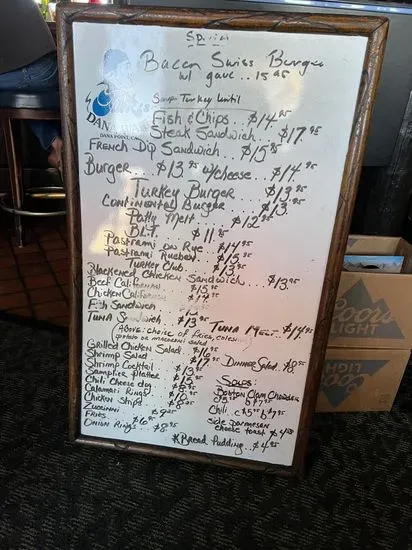 Bacon Swiss Burger
w/ gauc .. 15.95
Soup Turkey Lentil
DANA POINT, CA
Fish & Chips .. $14.95
Steak Sandwich ... $17.95
French Dip Sandwich .. $15.95
Burger ... $13.95 w/cheese .. $14.95
Turkey Burger ... $13.95
Continental Burger .. $13.95
Patty Melt .. $12.95
B.L.T. .. $11.95
Pastrami on Rye .. $14.95
Pastrami Rueben .. $15.95
Turkey Club .. $13.95
Blackened Chicken Sandwich ... $13.95
Beef California $15.95
Chicken California $14.95
Fish Sandwich
Tuna Sandwich ... $13.95
Tuna Melt .. $14.95
(Above: choice of fries, coleslaw
potato or macaroni salad)
Grilled Chicken Salad .. $16.95
Shrimp Salad
Shrimp Cocktail
Sampler Platter
Chili Cheese dog
Calamari Rings
Chicken Strips
Zuccini .. $9.25
Fries .. $6
Onion Rings .. $8.95
Dinner Salad .. $8.95
Soups:
Boston Clam Chowder
Chili
side parmesan
cheese toast
*Bread Pudding .. $4.95
Coors
LIGHT
LIGHT